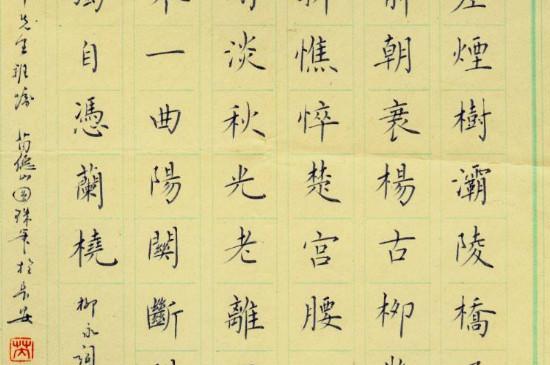 差煙樹灞陵橋
前朝衰楊古柳
折憔悴楚宮腰
淡秋光老離
一曲陽關斷
獨自憑蘭橈 柳永詞
先生 於長安